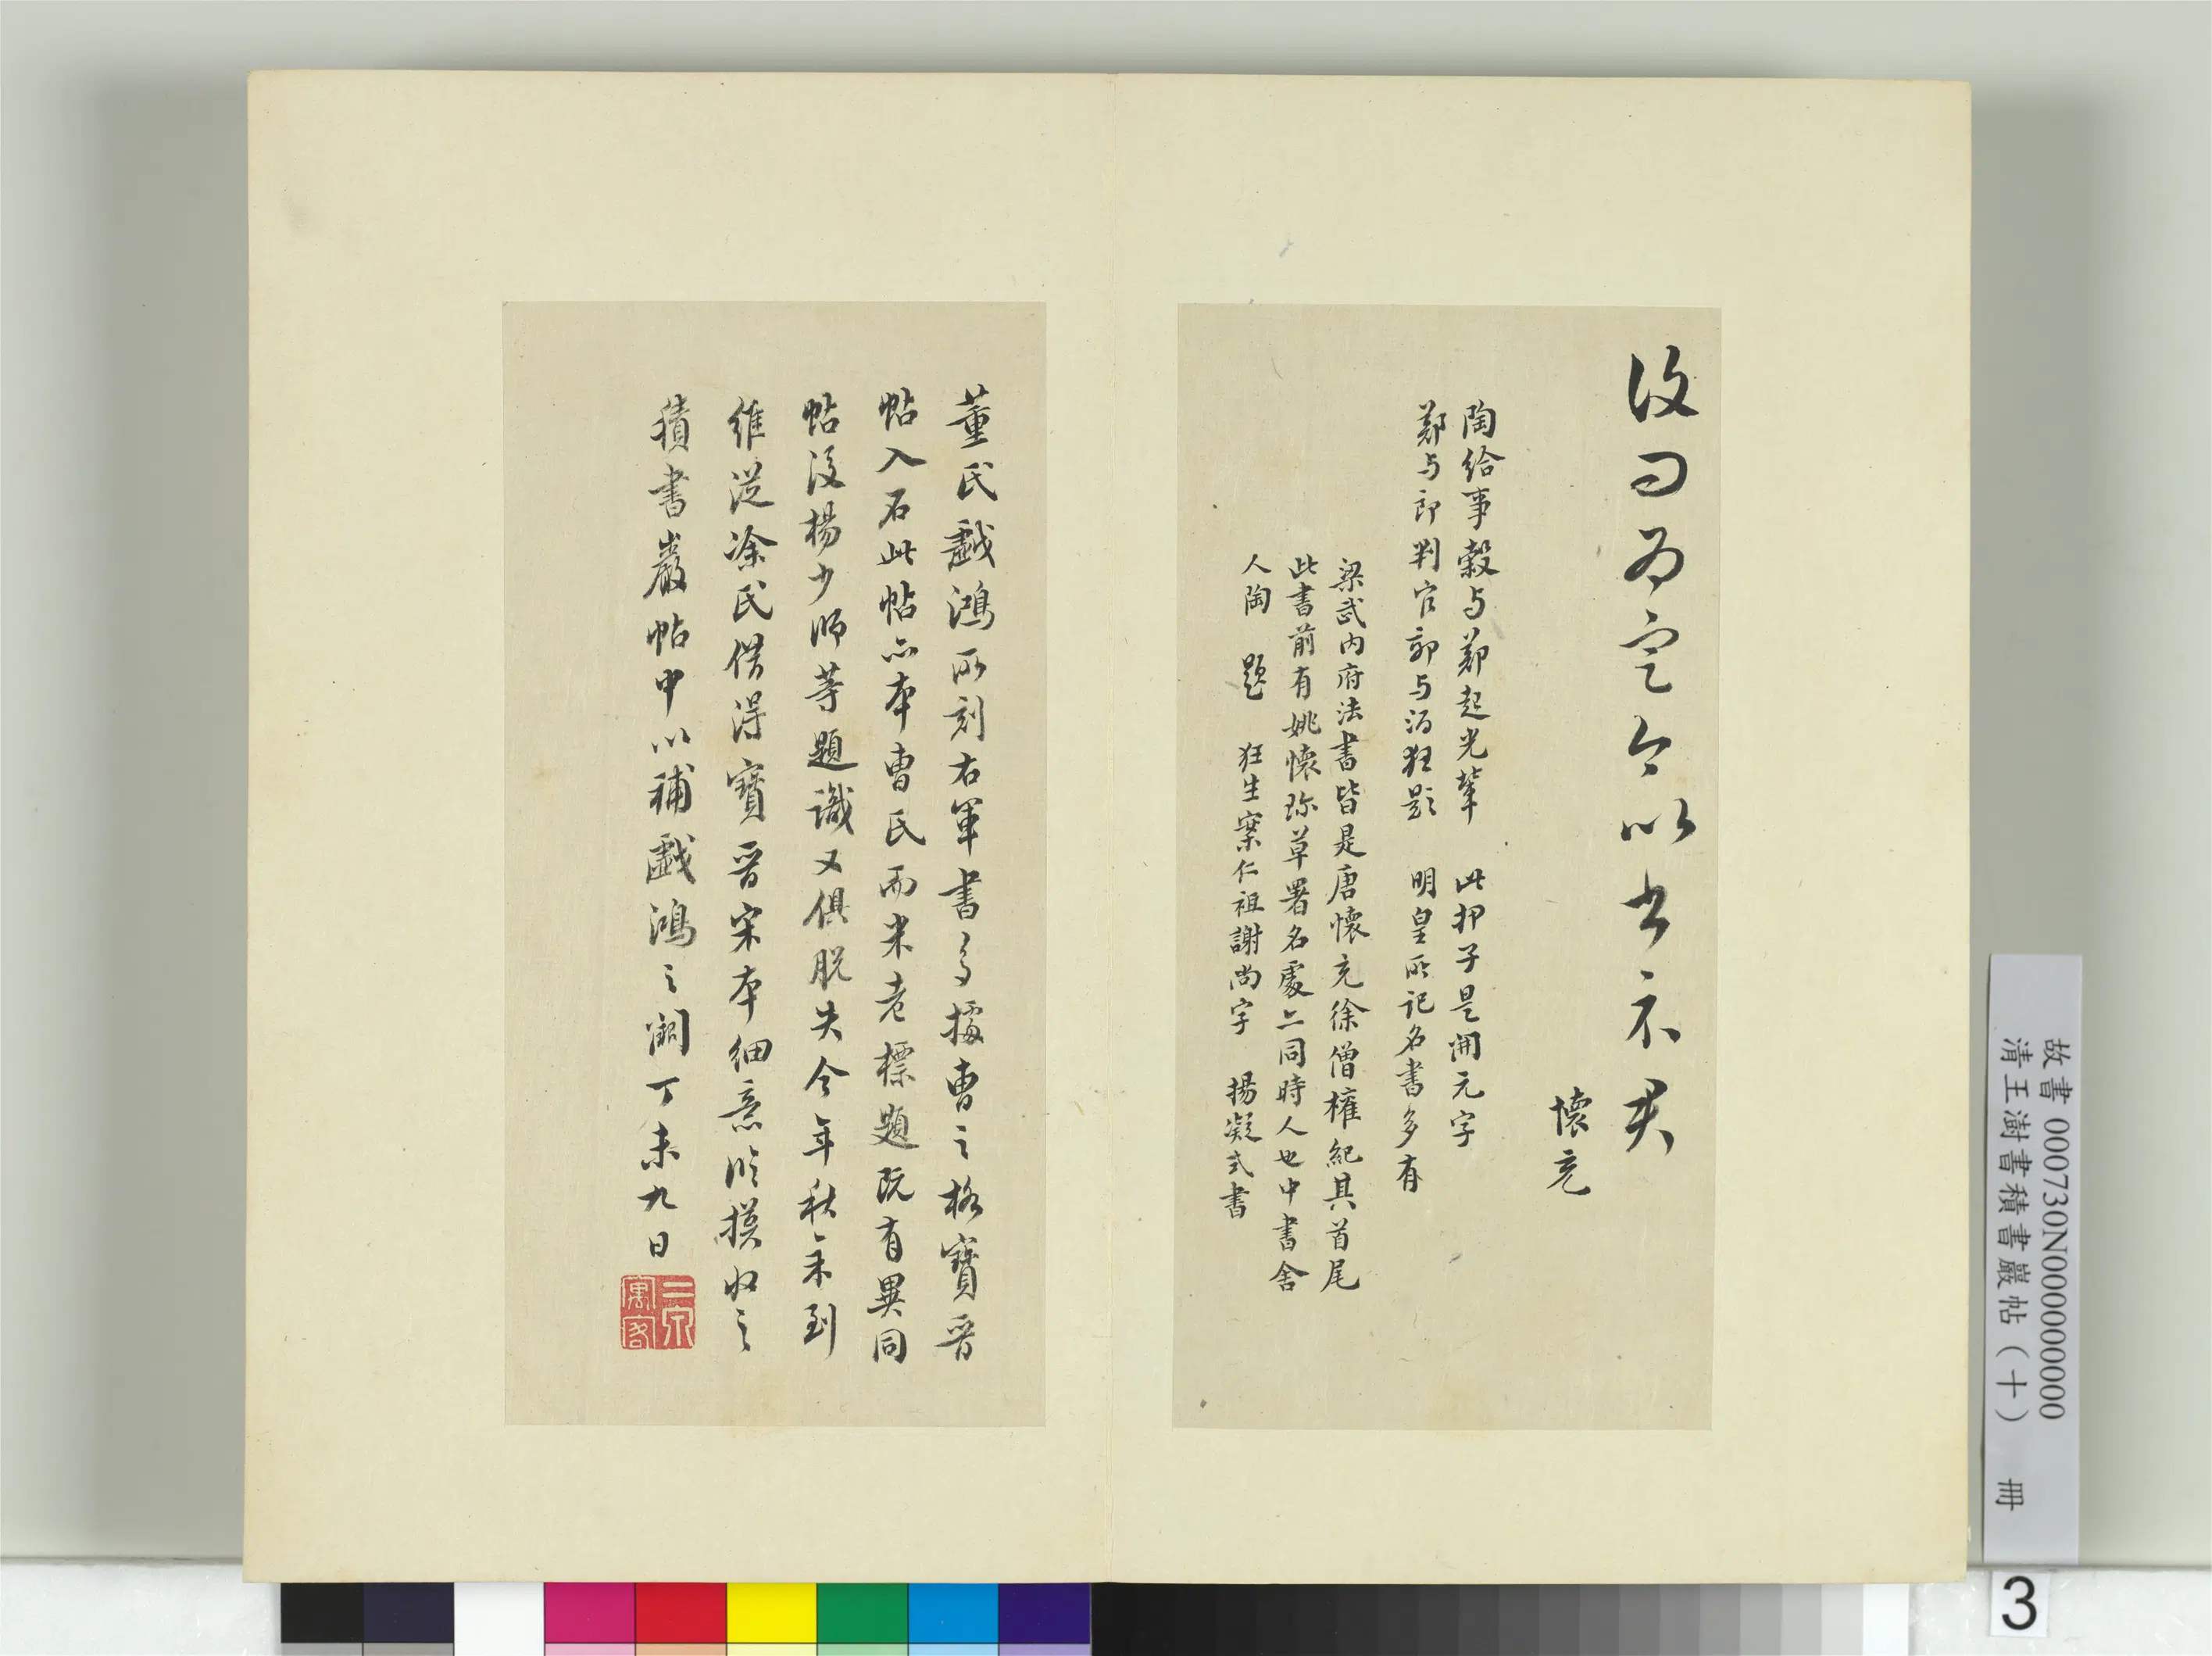 復⿵
為定公以書不具
懷充
陶給事穀与鄭起光輩　此押子是開元字
鄭与郎判官郭与酒狂題　明皇所記名書多有
梁武內府法書皆是唐懷充徐僧權紀其首尾
此書前有姚懷珍草署名處二同時人也中書舍
人陶　題　狂生案仁祖謝尚字　楊凝式書
董氏戲鴻所刻右軍書多據曹之格寶晉
帖入石此帖亦本曹氏而米老標題既有異同
帖後楊少師等題識又俱脫失今年秋余到
維從涂氏借得寶晉宋本細意臨摸收之
積書巖帖中以補戲鴻之闕丁未九日
二泉寓客
故書000730N000000000
清王澍書積書巖帖（十）　冊
3